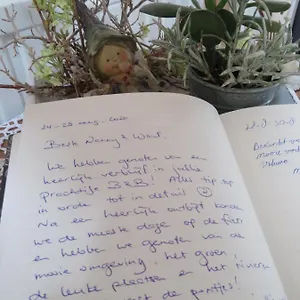 24-28 aug. 2020
Beste Nanny & Wout.
We hebben genoten van een
heerlijk verblijf in jullie
prachtige B&B! Alles tip top
in orde tot in detail ☺
Na een heerlijk ontbijt
we de meeste dagen op de fiets
en hebben we genoten van de
mooie omgeving. het groen
de leuke plaatsen en het rivieren
de pontjes!
Bedankt
mooie